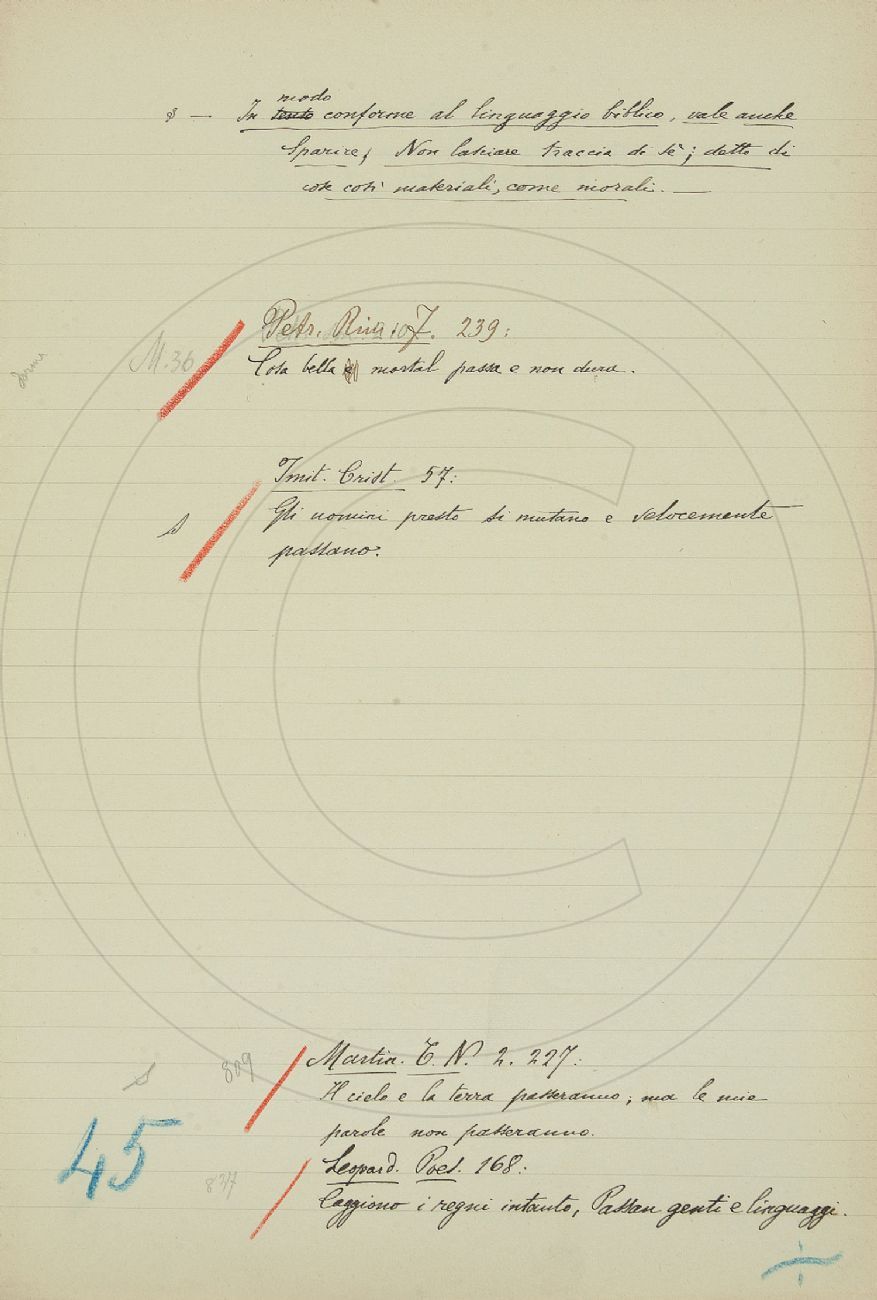 § — In ~~senso~~ modo conforme al linguaggio biblico, vale anche
Sparire, Non lasciare traccia di sè; detto di
cose così materiali, come morali. —
Petr. Rim. 107. 239:
M. 36
Cosa bella mortal passa e non dura.
Imit. Crist. 57:
S
Gli uomini presto si mutano e velocemente
passano.
Martin. T. N. 2. 227:
S 809
Il cielo e la terra passeranno; ma le mie
parole non passeranno.
45
Leopard. Poes. 168:
837
Caggiono i regni intanto, Passan genti e linguaggi.